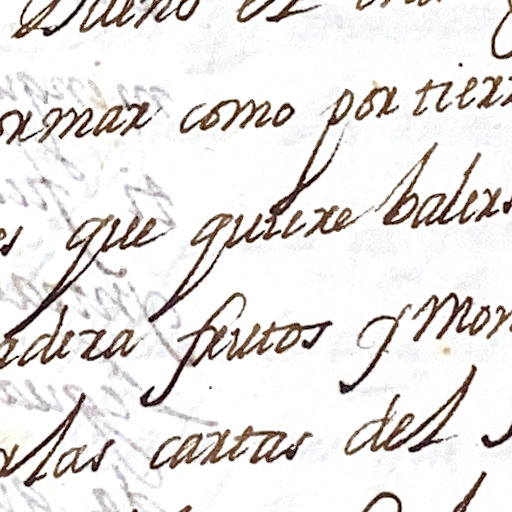 ormar como por tierr
es que quiere balers
dera frutos y Mon
las cartas del